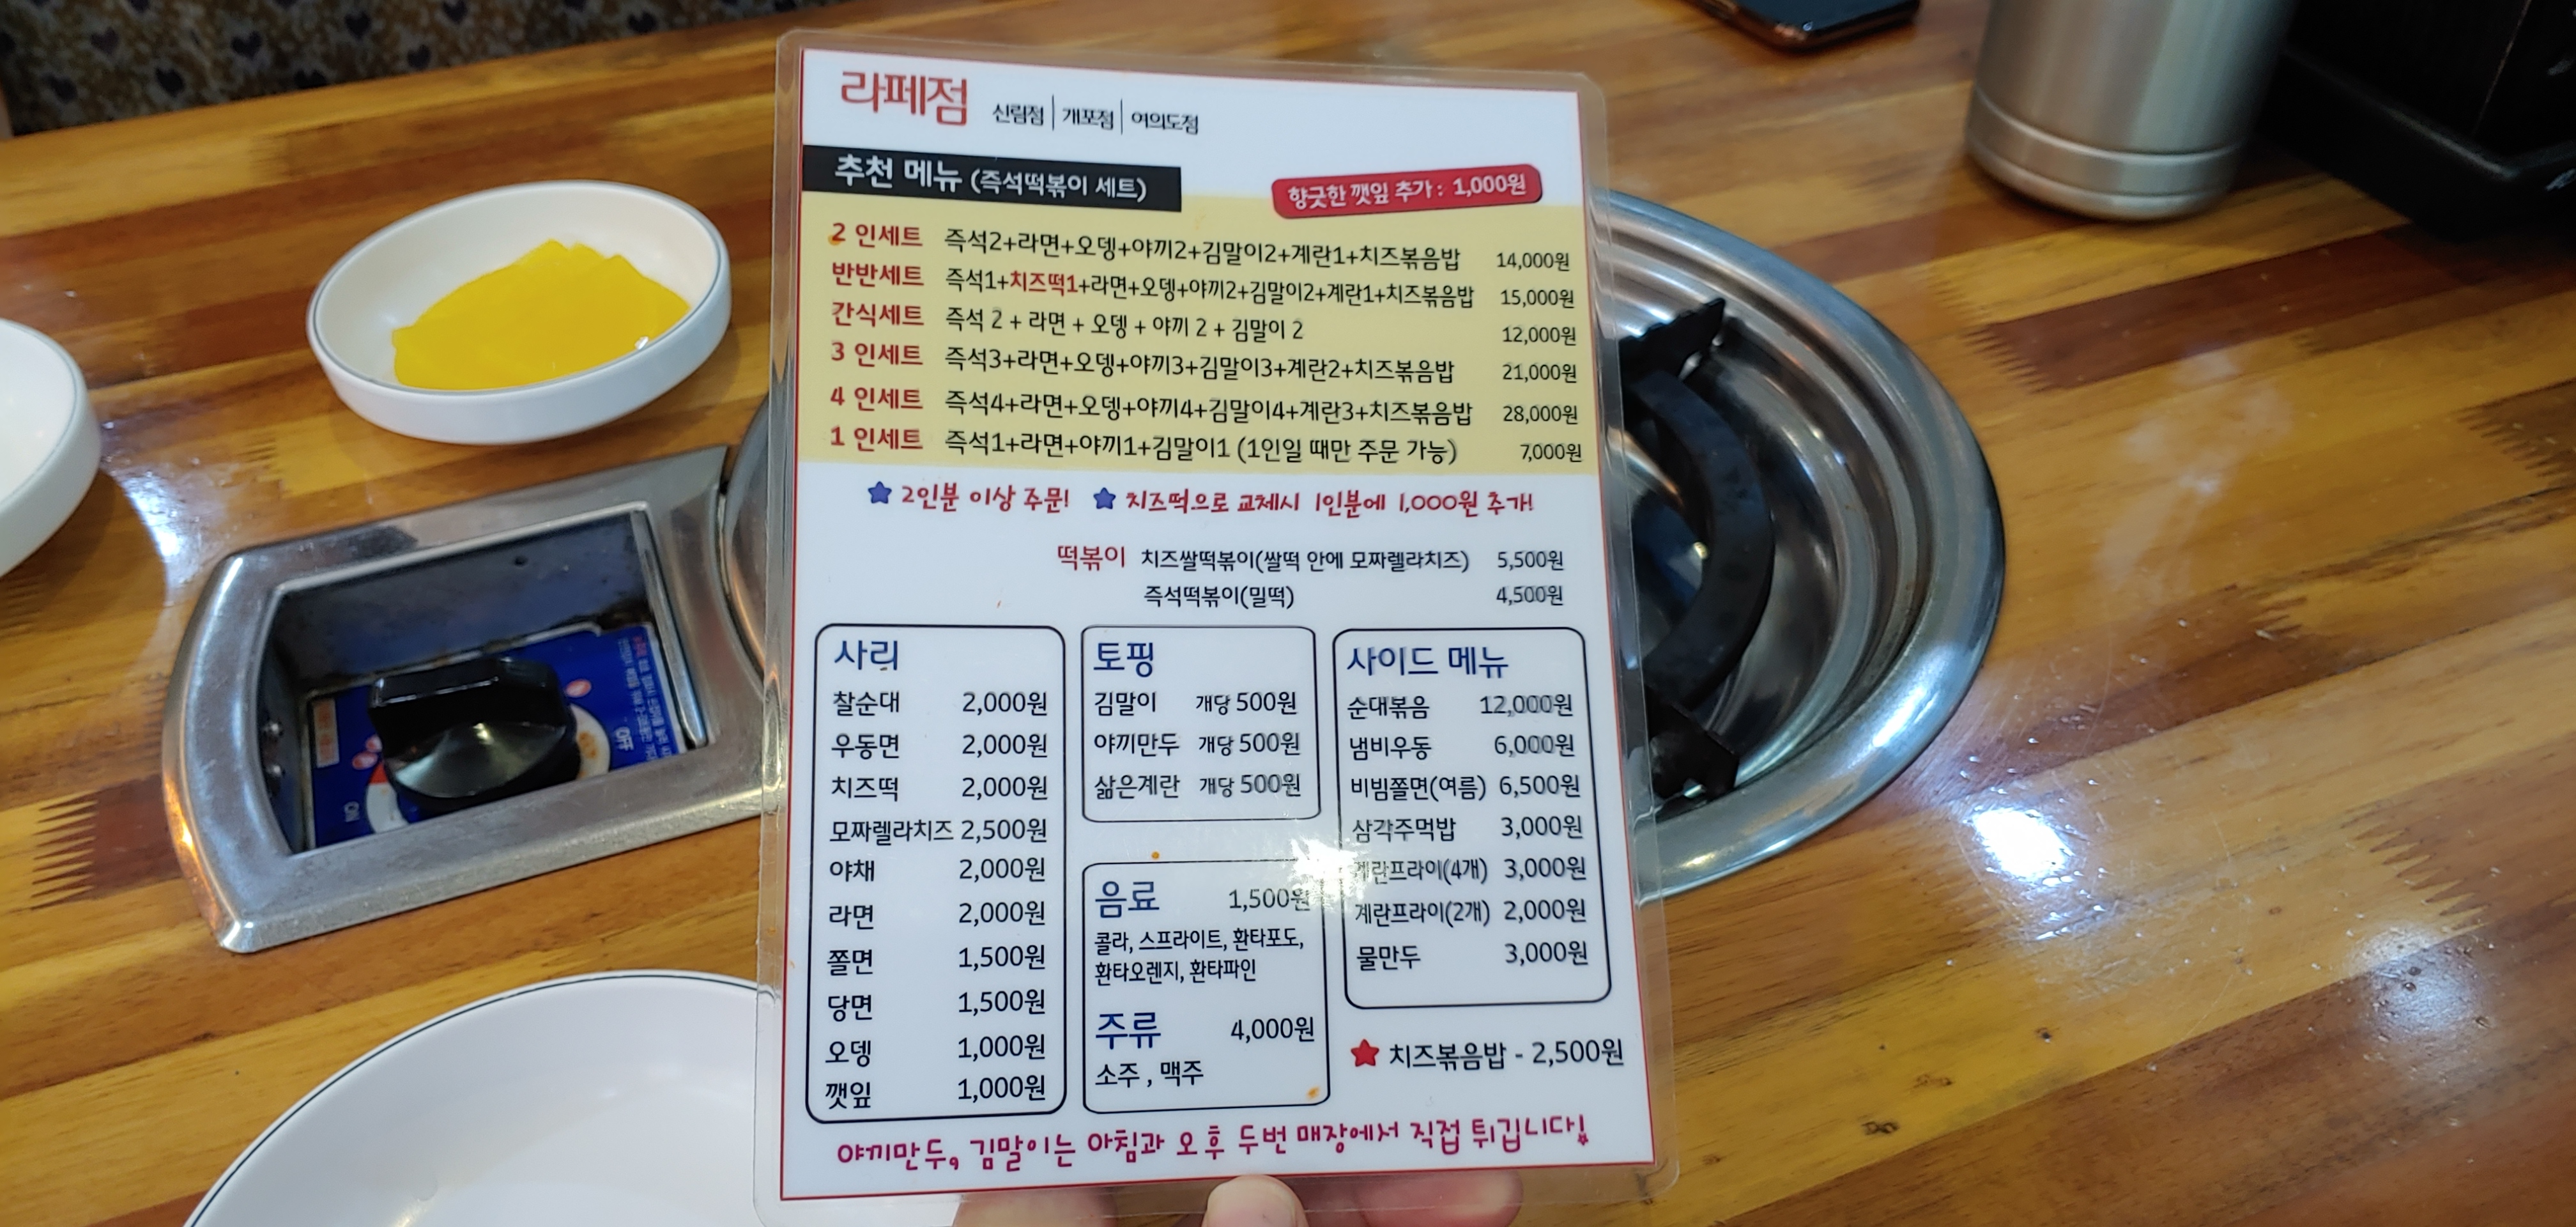 라페점 신림점 | 개포점 | 여의도점
추천 메뉴 (즉석떡볶이 세트)
향긋한 깻잎 추가 : 1,000원
2 인세트 즉석2+라면+오뎅+야끼2+김말이2+계란1+치즈볶음밥 14,000원
반반세트 즉석1+치즈떡1+라면+오뎅+야끼2+김말이2+계란1+치즈볶음밥 15,000원
간식세트 즉석 2 + 라면 + 오뎅 + 야끼 2 + 김말이 2 12,000원
3 인세트 즉석3+라면+오뎅+야끼3+김말이3+계란2+치즈볶음밥 21,000원
4 인세트 즉석4+라면+오뎅+야끼4+김말이4+계란3+치즈볶음밥 28,000원
1 인세트 즉석1+라면+야끼1+김말이1 (1인일 때만 주문 가능) 7,000원
★ 2인분 이상 주문! ★ 치즈떡으로 교체시 1인분에 1,000원 추가!
떡볶이 치즈쌀떡볶이(쌀떡 안에 모짜렐라치즈) 5,500원
즉석떡볶이(밀떡) 4,500원
사리
찰순대 2,000원
우동면 2,000원
치즈떡 2,000원
모짜렐라치즈 2,500원
야채 2,000원
라면 2,000원
쫄면 1,500원
당면 1,500원
오뎅 1,000원
깻잎 1,000원
토핑
김말이 개당 500원
야끼만두 개당 500원
삶은계란 개당 500원
음료 1,500원
콜라, 스프라이트, 환타포도,
환타오렌지, 환타파인
주류 4,000원
소주 , 맥주
사이드 메뉴
순대볶음 12,000원
냄비우동 6,000원
비빔쫄면(여름) 6,500원
삼각주먹밥 3,000원
계란프라이(4개) 3,000원
계란프라이(2개) 2,000원
물만두 3,000원
★ 치즈볶음밥 - 2,500원
야끼만두, 김말이는 아침과 오후 두번 매장에서 직접 튀깁니다!
OFF
ON